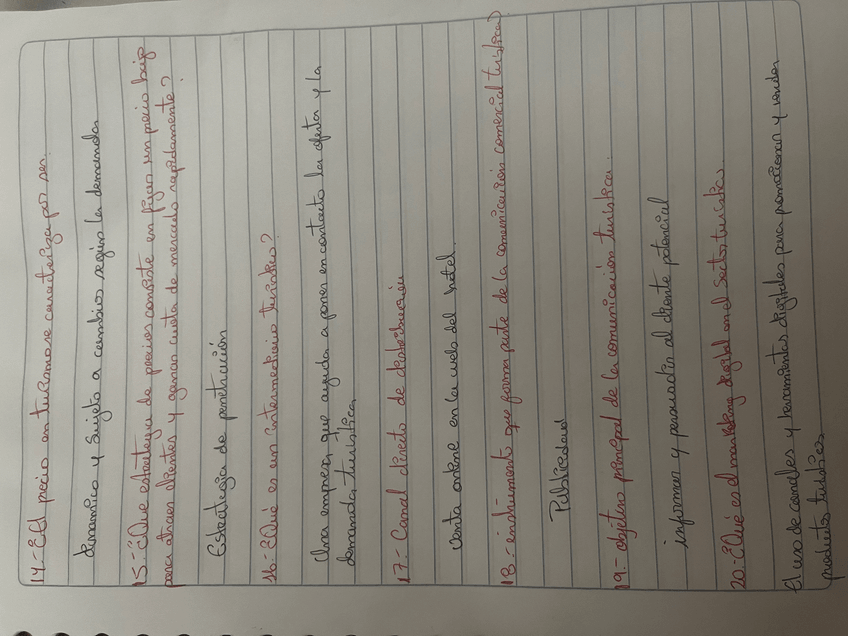 14.- ¿El precio en turismo se caracteriza por ser.
dinamico y sujeto a cambios según la demanda
15.- ¿Qué estrategia de precios consiste en fijar un precio bajo
para atraer clientes y ganar cuota de mercado rapidamente?
Estrategia de penetración
16.- ¿Qué es un intermediario turistico?
Una empresa que ayuda a poner en contacto la oferta y la
demanda turística
17.- Canal directo de distribución
Venta online en la web del hotel.
18.- instrumento que forma parte de la comunicación comercial turística)
Publicidad
19.- objetivo principal de la comunicación turística.
informar y persuadir al cliente potencial
20.- ¿Qué es el marketing digital en el sector turistico
El uso de canales y herramientas digitales para promocionar y vender
productos turísticos